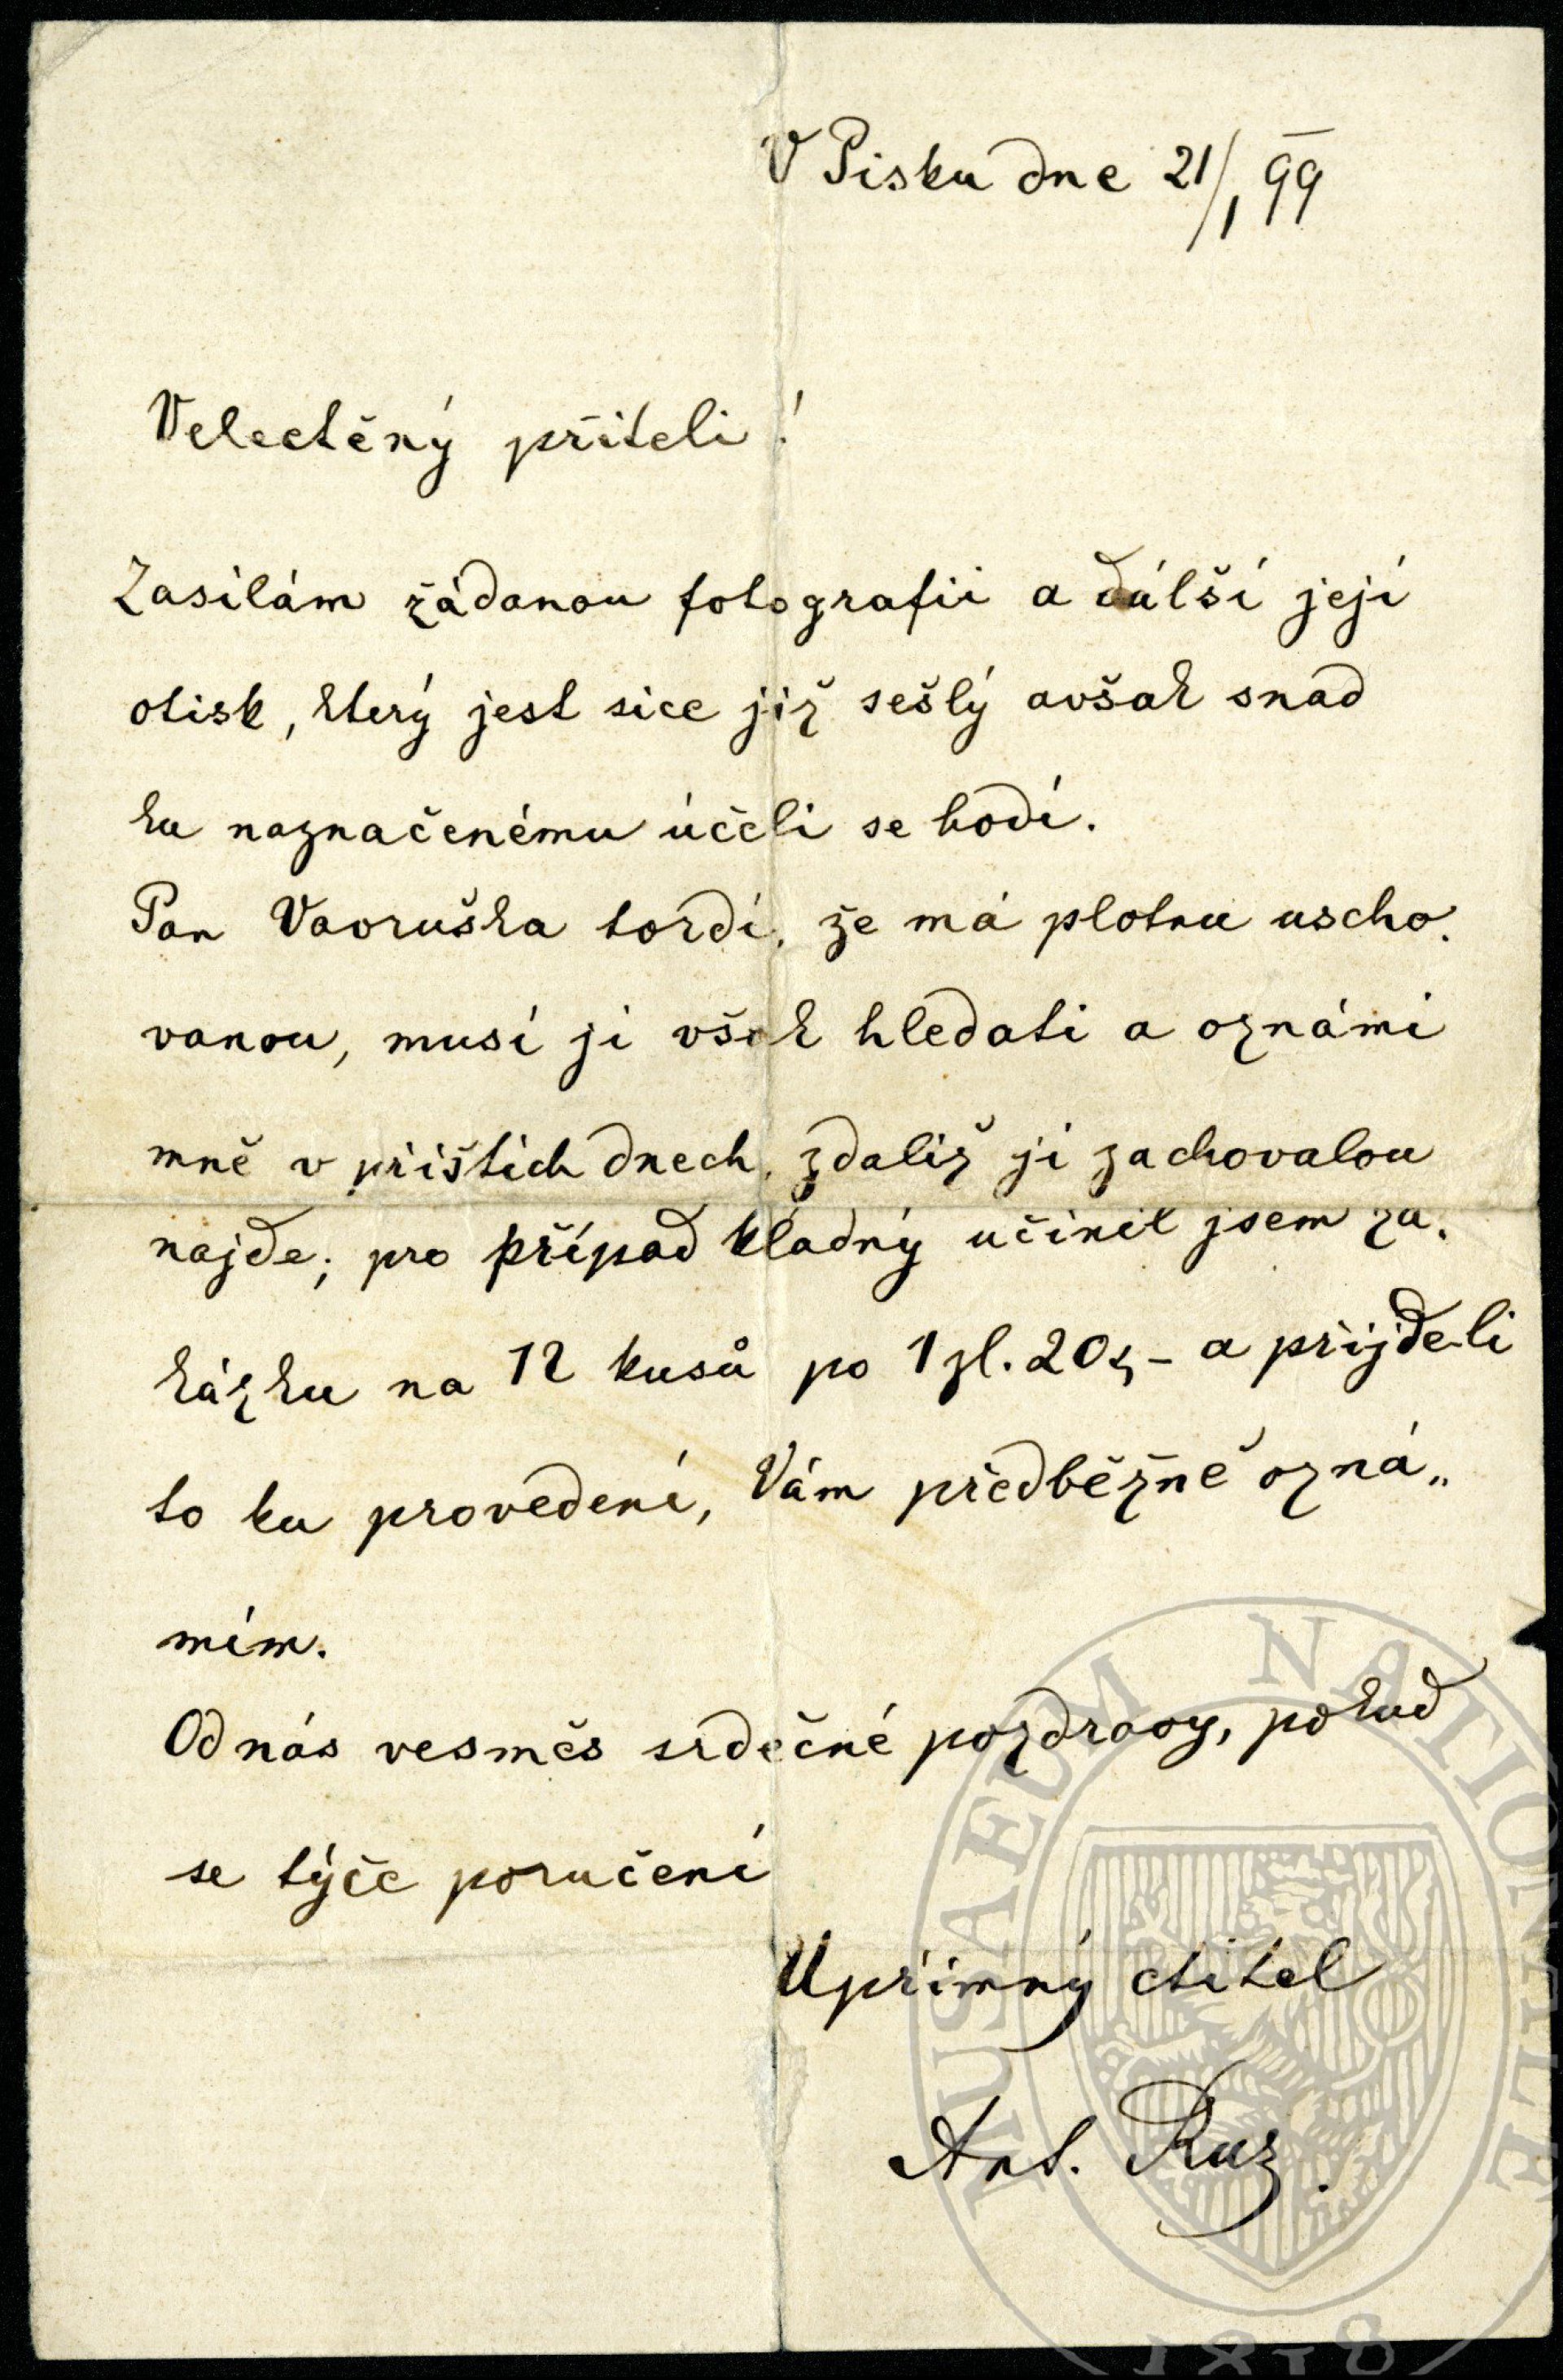 V Pisku dne 21/1 99
Velectěný příteli!
Zasílám žádanou fotografii a další její
otisk, který jest sice již sešlý avšak snad
ku naznačenému účeli se hodí.
Pan Vavruška tvrdí, že má plotnu uscho-
vanou, musí ji však hledati a oznámí
mně v příštích dnech, zdaliž ji zachovalou
najde; pro případ kladný učinil jsem za-
kázku na 12 kusů po 1 zl. 20 - a přijde-li
to ku provedení, Vám předběžně ozná„
mím.
Od nás vesměs srdečné pozdravy, pokud
se týče poručení
Upřímný ctitel
Ant.
MUSAEUM NATIONALE
1818